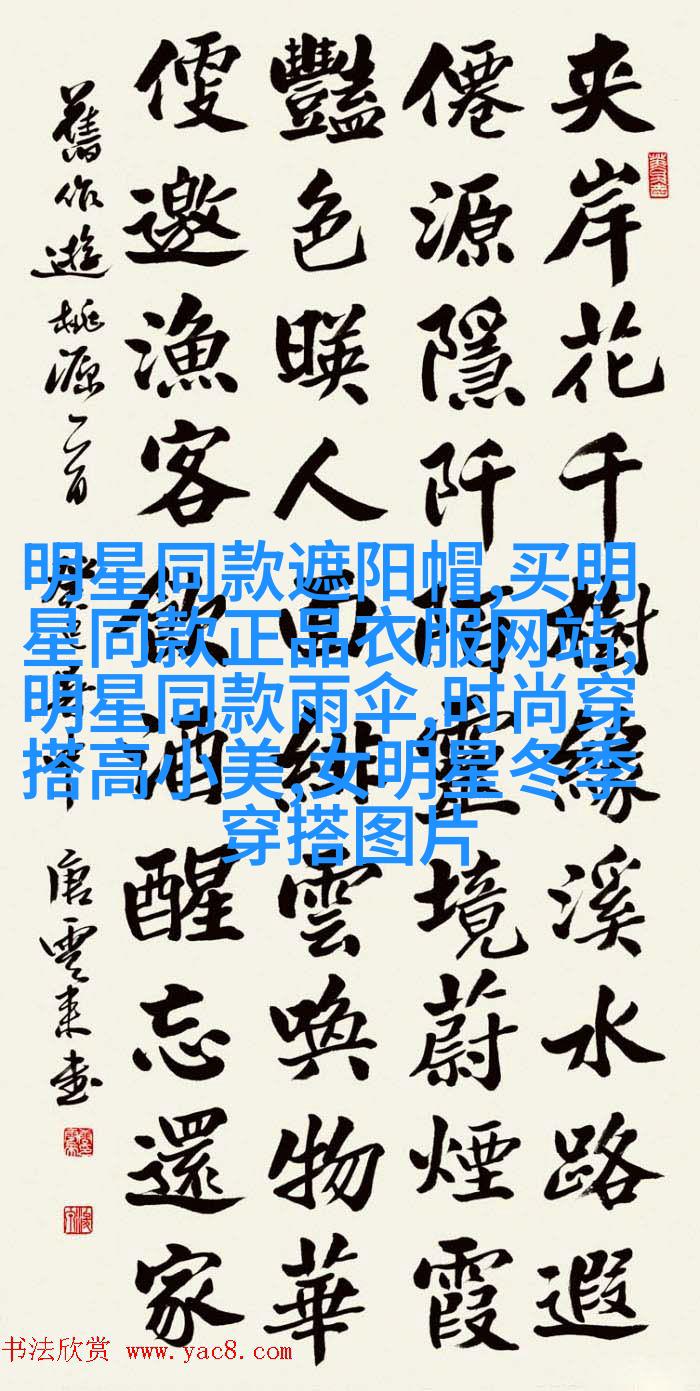 夾岸花千樹緣溪水路遐
僊源隱阡陌靈境蔚煙霞
豔色暎人面緋雲喚物華
便邀漁客酒醒忘還家
舊作遊桃源二首
唐雲来書
明星同款遮阳帽,买明
星同款正品衣服网站,
明星同款雨伞,时尚穿
搭高小美,女明星冬季
穿搭图片
书法欣赏 www.yac8.com